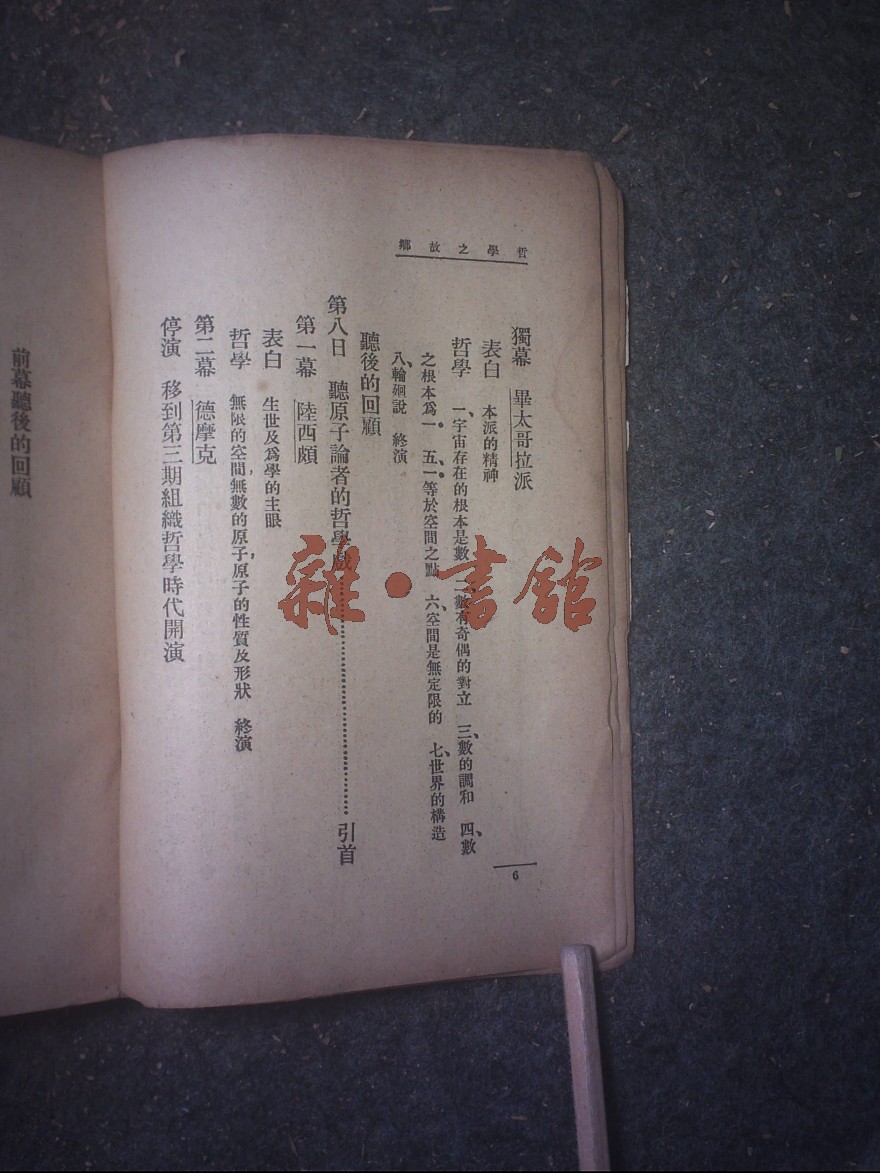 哲學之故鄉
獨幕　畢太哥拉派
表白　本派的精神
哲學　一、宇宙存在的根本是數　二、數有奇偶的對立　三、數的調和　四、數
之根本爲一。　五、一等於空間之點　六、空間是無定限的　七、世界的構造
八、輪廻說　終演
聽後的回顧
第八日　聽原子論者的哲學戲……………………引首
第一幕　陸西頗
表白　生世及爲學的主眼
哲學　無限的空間，無數的原子，原子的性質及形狀　終演
第二幕　德摩克
停演　移到第三期組織哲學時代開演
6
前幕聽後的回顧
雜·書館